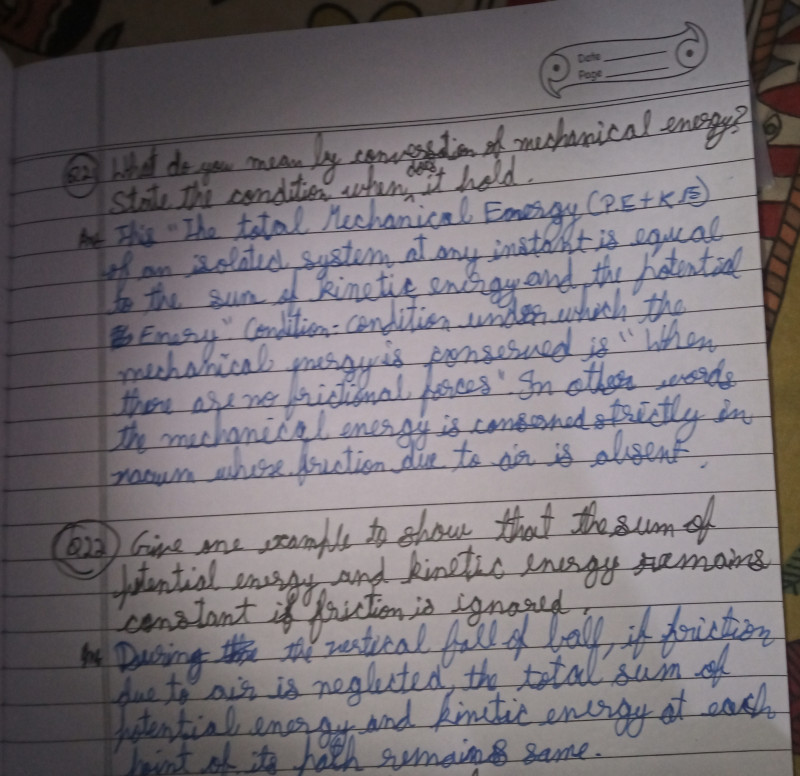 Date
Page
Q21 What do you mean by conversation of mechanical energy?
State the condition when does it hold.
Ans This "The total Mechanical Energy (P.E + K.E)
of an isolated system at any instant is equal
to the sum of kinetic energy and the potential
Enery" Condition - condition under which the
mechanical energy is conserved is "When
there are no frictional forces". In other words
the mechanical energy is conserned strictly in
vacum where friction due to air is absent.
Q22 Give one example to show that the sum of
potential energy and kinetic energy remains
constant if friction is ignored.
Ans During the vertical fall of ball, if friction
due to air is neglected, the total sum of
potential energy and kinetic energy at each
point of its path remains same.